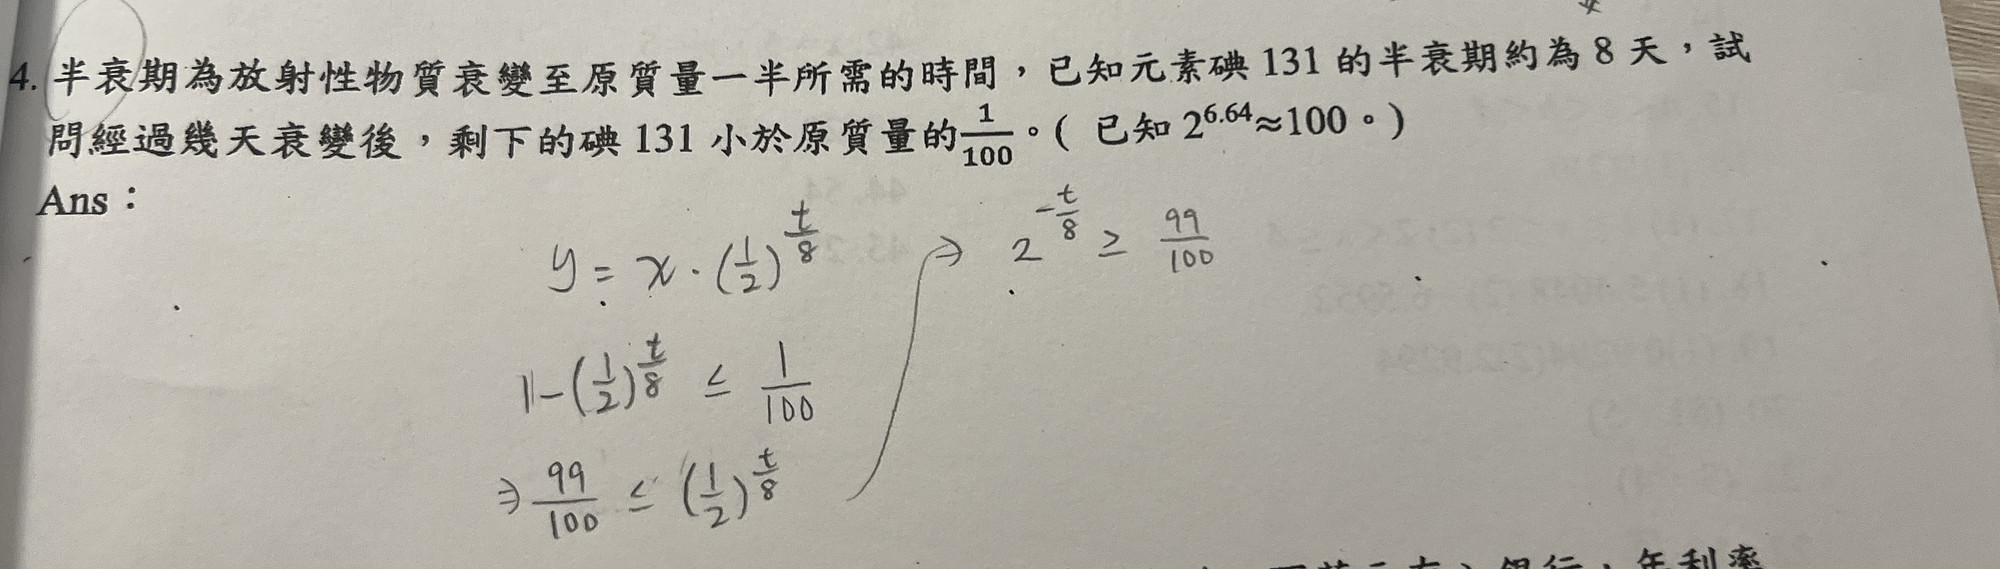 4. 半衰期為放射性物質衰變至原質量一半所需的時間，已知元素碘 131 的半衰期約為 8 天，試
問經過幾天衰變後，剩下的碘 131 小於原質量的 1/100。( 已知 2^6.64≈100。)
Ans：
y = x · (1/2)^(t/8)
1-(1/2)^(t/8) ≤ 1/100
⇒ 99/100 ≤ (1/2)^(t/8)
⇒ 2^(-t/8) ≥ 99/100
年利率